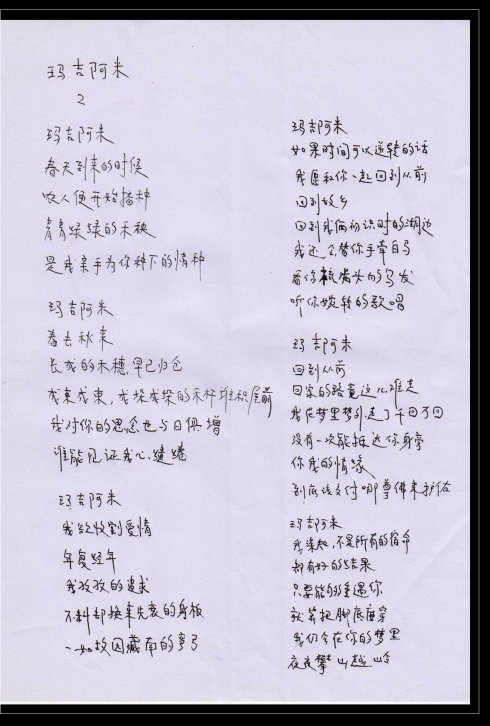 玛吉阿米
2
玛吉阿米
春天到来的时候
农人便开始播种
青青绿绿的禾秧
是我亲手为你种下的情种
玛吉阿米
春去秋来
长成的禾穗,早已归仓
成束成束,成垛成垛的禾秆堆积屋前
我对你的思念也与日俱增
谁能见证我心缱绻
玛吉阿米
我欲收割爱情
年复经年
我孜孜的追求
不料却换来先衰的身板
一如故因藏南的弯弓
玛吉阿米
如果时间可以逆转的话
我愿和你一起回到从前
回到故乡
回到我俩初识时的湖边
我还会替你手牵白马
看你梳齐头的乌发
听你婉转的歌唱
玛吉阿米
回到从前
回家的路竟这么难走
我在梦里梦外,走了千回万回
没有一次能抵达你身旁
你我的情缘
到底该交付哪尊佛来护佑
玛吉阿米
我深知,不是所有的宿命
都有好的结果
只要能够重遇你
就算把脚底磨穿
我仍会在你的梦里
夜夜攀山越岭